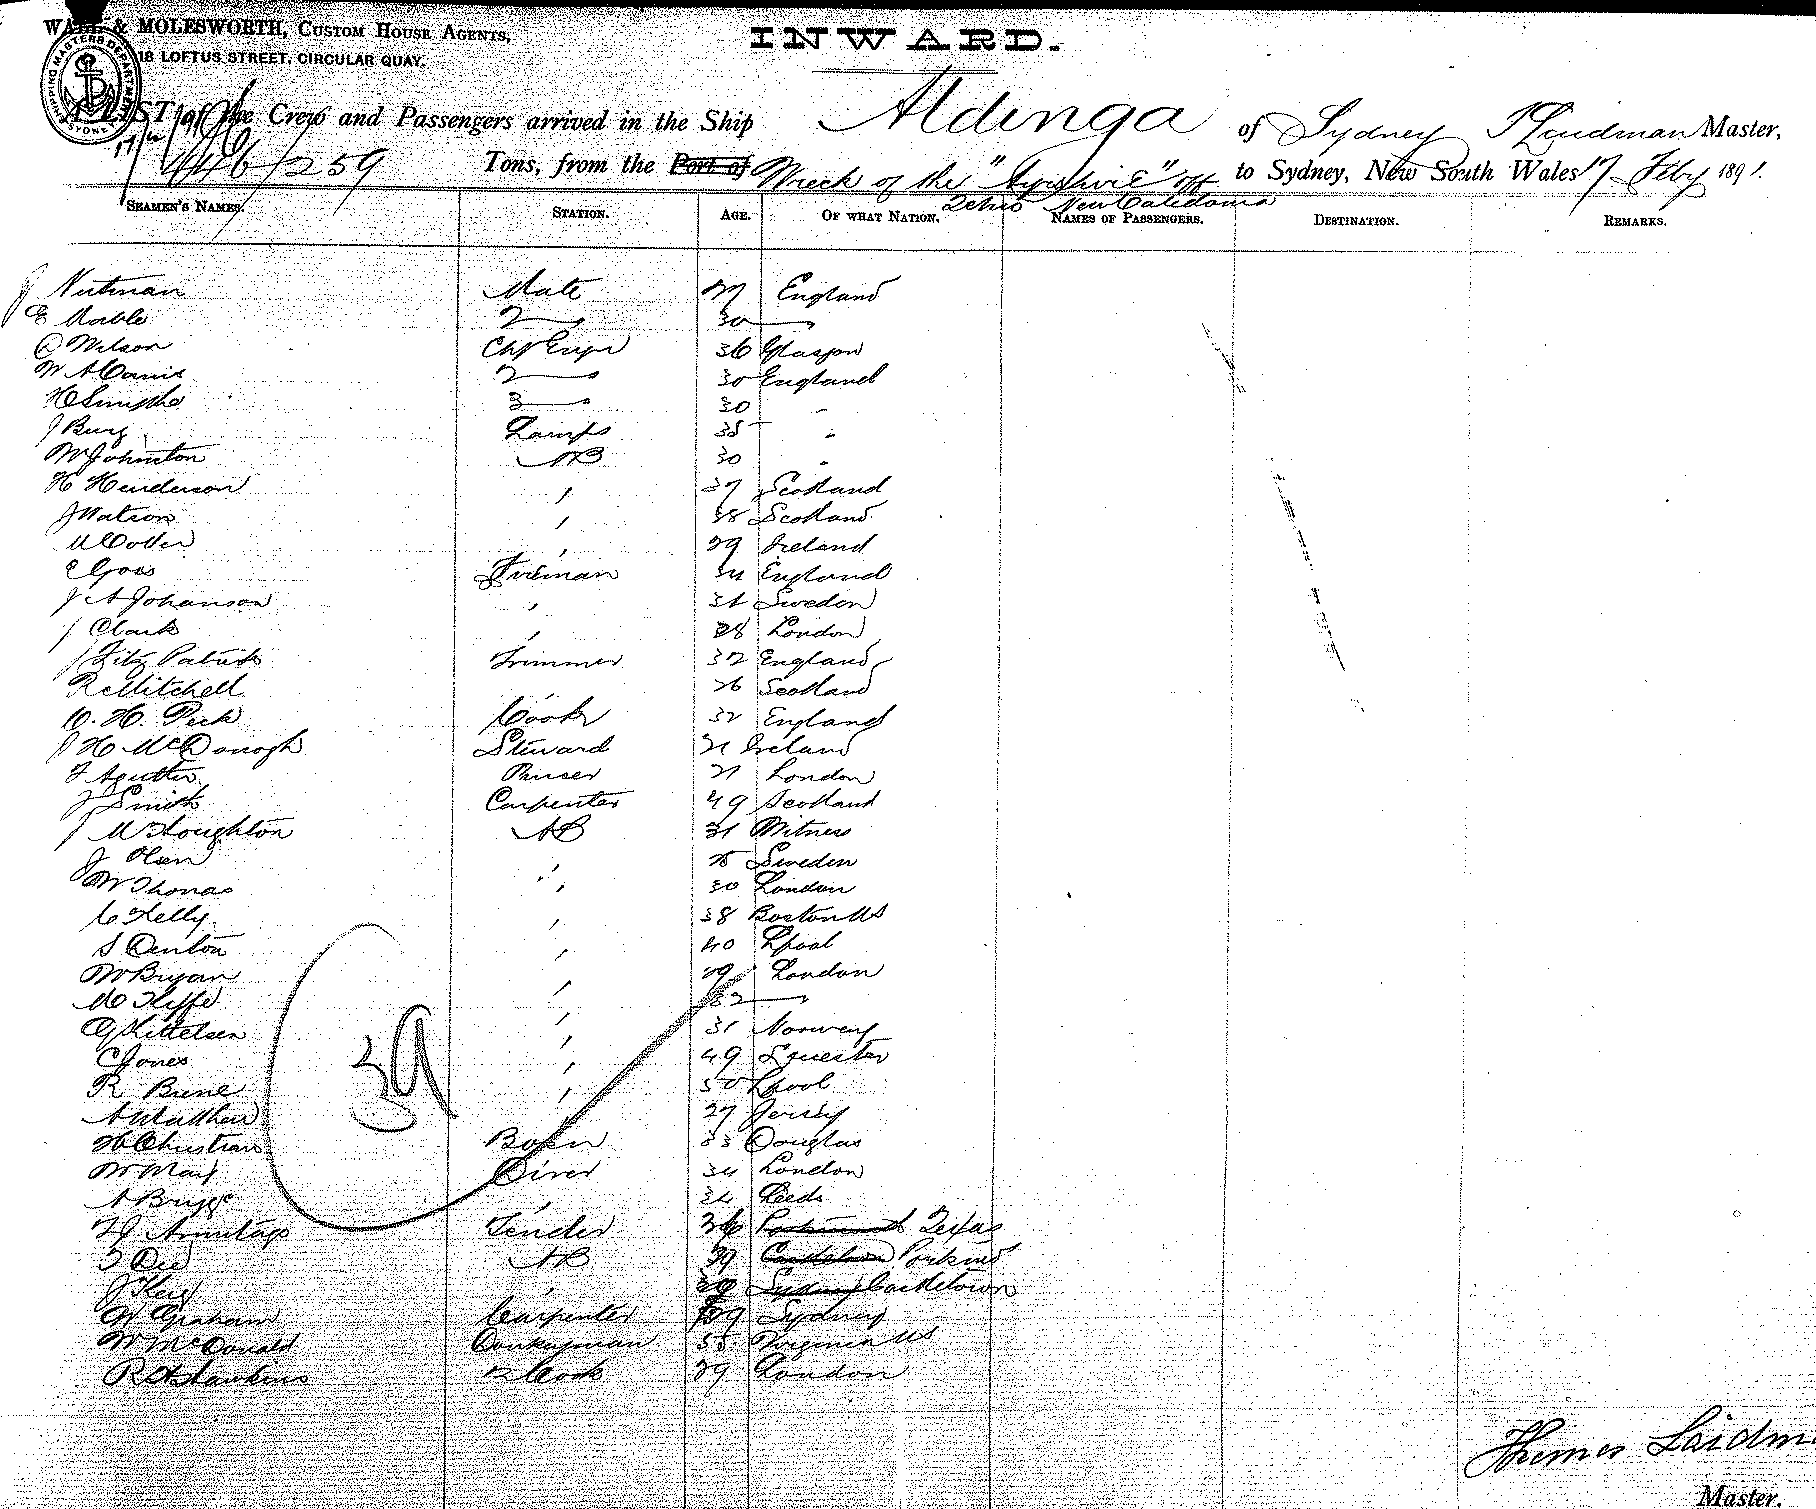 WALL & MOLESWORTH, CUSTOM HOUSE AGENTS,
18 LOFTUS STREET, CIRCULAR QUAY.
INWARD.
A LIST of the Crew and Passengers arrived in the Ship Aldinga of Sydney T Laidman Master,
446/259 Tons, from the Port of Wreck of the "Ayrshire" off to Sydney, New South Wales 17 Feby 1891.
New Caledonia
SEAMEN'S NAMES. STATION. AGE. OF WHAT NATION. NAMES OF PASSENGERS. DESTINATION. REMARKS.
Nutman Mate England
E Noble 2 30
Wilson Chf Engr 36 Glasgow
W A 2 30 England
H Smythe 3 30 "
J Burg Lamps 35 "
W Johnston AB 30 "
H Henderson " 37 Scotland
J Watson " 38 Scotland
M Cotter " 29 Ireland
E Goss Fireman 34 England
J A Johanson " 31 Sweden
J Clark " 28 London
J Fitz Patrick Trimmer 32 England
R Mitchell " 26 Scotland
H. Peck Cook 32 England
J H McDonogh Steward 21 Ireland
F Agutter Purser 21 London
J Smith Carpenter 49 Scotland
J McLoughton AB 31 Witness
J Olsen " 25 Sweden
W Thomas " 30 London
C Kelly " 38 Boston US
S Denton " 40 Lpool
W Bryan " 29 London
" 32
G Kittelsen " 31 Norway
C Jones " 49
R " 50 Lpool
A " 27 Jersey
H Christian Bosn 33 Douglas
W May Diver 34 London
A Briggs " 34 Leeds
Armitage Tender 36 Texas
AB 39
J " Castletown
W Graham Carpenter 29 Sydney
W McDonald Donkeyman 55 Virginia US
R Hawkins 2 Cook 29 London
39
Thomas Laidm
Master.